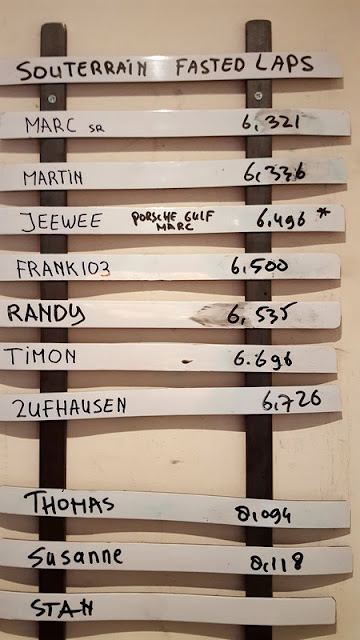 SOUTERRAIN FASTED LAPS
MARC SR 6,321
MARTIN 6,336
JEEWEE PORSCHE GULF MARC 6,496 *
FRANK103 6,500
RANDY 6,535
TIMON 6.696
ZUFHAUSEN 6,726
THOMAS 8,094
Susanne 8,118
STAN